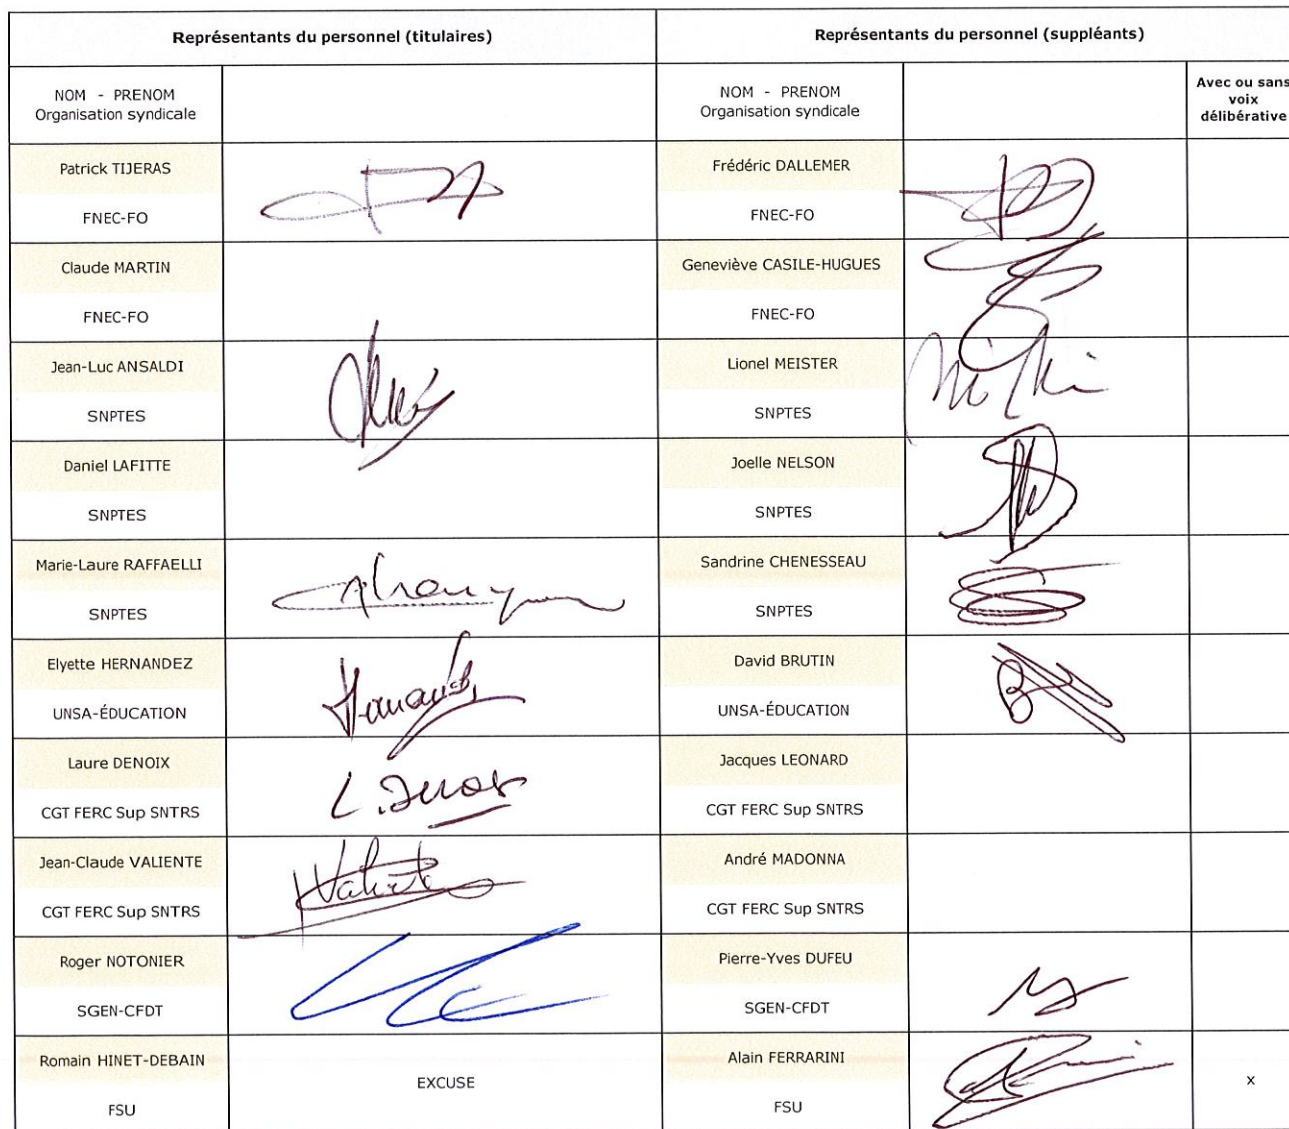 Représentants du personnel (titulaires)
Représentants du personnel (suppléants)
NOM - PRENOM
Organisation syndicale
NOM - PRENOM
Organisation syndicale
Avec ou sans
voix
délibérative
Patrick TIJERAS
FNEC-FO
Frédéric DALLEMER
FNEC-FO
Claude MARTIN
FNEC-FO
Geneviève CASILE-HUGUES
FNEC-FO
Jean-Luc ANSALDI
SNPTES
Lionel MEISTER
SNPTES
Daniel LAFITTE
SNPTES
Joelle NELSON
SNPTES
Marie-Laure RAFFAELLI
SNPTES
Sandrine CHENESSEAU
SNPTES
Elyette HERNANDEZ
UNSA-ÉDUCATION
David BRUTIN
UNSA-ÉDUCATION
Laure DENOIX
CGT FERC Sup SNTRS
Jacques LEONARD
CGT FERC Sup SNTRS
Jean-Claude VALIENTE
CGT FERC Sup SNTRS
André MADONNA
CGT FERC Sup SNTRS
Roger NOTONIER
SGEN-CFDT
Pierre-Yves DUFEU
SGEN-CFDT
Romain HINET-DEBAIN
FSU
EXCUSE
Alain FERRARINI
FSU
x